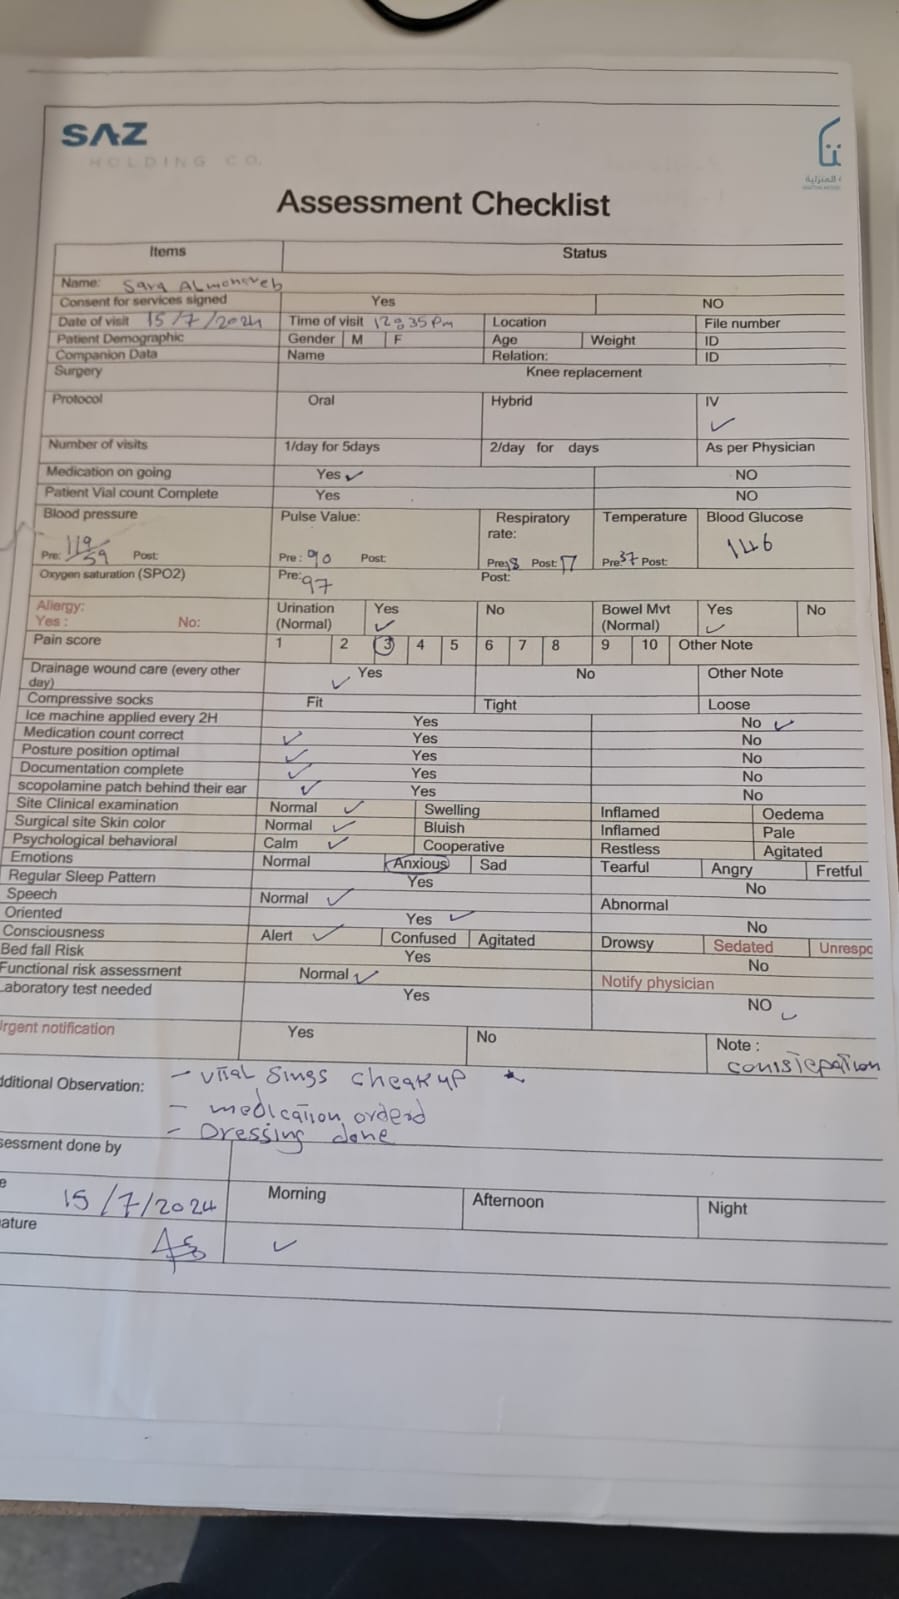 SAZ
HOLDING CO.
المنزلية
Assessment Checklist
Items Status
Name: Sara ALmonereb
Consent for services signed Yes NO
Date of visit 15/7/2024 Time of visit 12:35 Pm Location File number
Patient Demographic Gender M F Age Weight ID
Companion Data Name Relation: ID
Surgery Knee replacement
Protocol Oral Hybrid IV ✓
Number of visits 1/day for 5days 2/day for days As per Physician
Medication on going Yes ✓ NO
Patient Vial count Complete Yes NO
Blood pressure Pulse Value: Respiratory rate: Temperature Blood Glucose
Pre: 119/59 Post: Pre: 90 Post: Pre: 18 Post: 17 Pre: 37 Post: 146
Oxygen saturation (SPO2) Pre: 97 Post:
Allergy: Urination Yes No Bowel Mvt Yes No
Yes : No: (Normal) ✓ (Normal) ✓
Pain score 1 2 3 4 5 6 7 8 9 10 Other Note
Drainage wound care (every other day) ✓ Yes No Other Note
Compressive socks Fit Tight Loose
Ice machine applied every 2H Yes No ✓
Medication count correct ✓ Yes No
Posture position optimal ✓ Yes No
Documentation complete ✓ Yes No
scopolamine patch behind their ear ✓ Yes No
Site Clinical examination Normal ✓ Swelling Inflamed Oedema
Surgical site Skin color Normal ✓ Bluish Inflamed Pale
Psychological behavioral Calm ✓ Cooperative Restless Agitated
Emotions Normal Anxious Sad Tearful Angry Fretful
Regular Sleep Pattern Yes No
Speech Normal ✓ Abnormal
Oriented Yes ✓ No
Consciousness Alert ✓ Confused Agitated Drowsy Sedated Unrespo
Bed fall Risk Yes No
Functional risk assessment Normal ✓ Notify physician
Laboratory test needed Yes NO ✓
rgent notification Yes No Note :
conistepation
dditional Observation: - vital Sings cheak up
- medication orderd
- Dressing done
sessment done by
e 15/7/2024 Morning Afternoon Night
ature ✓